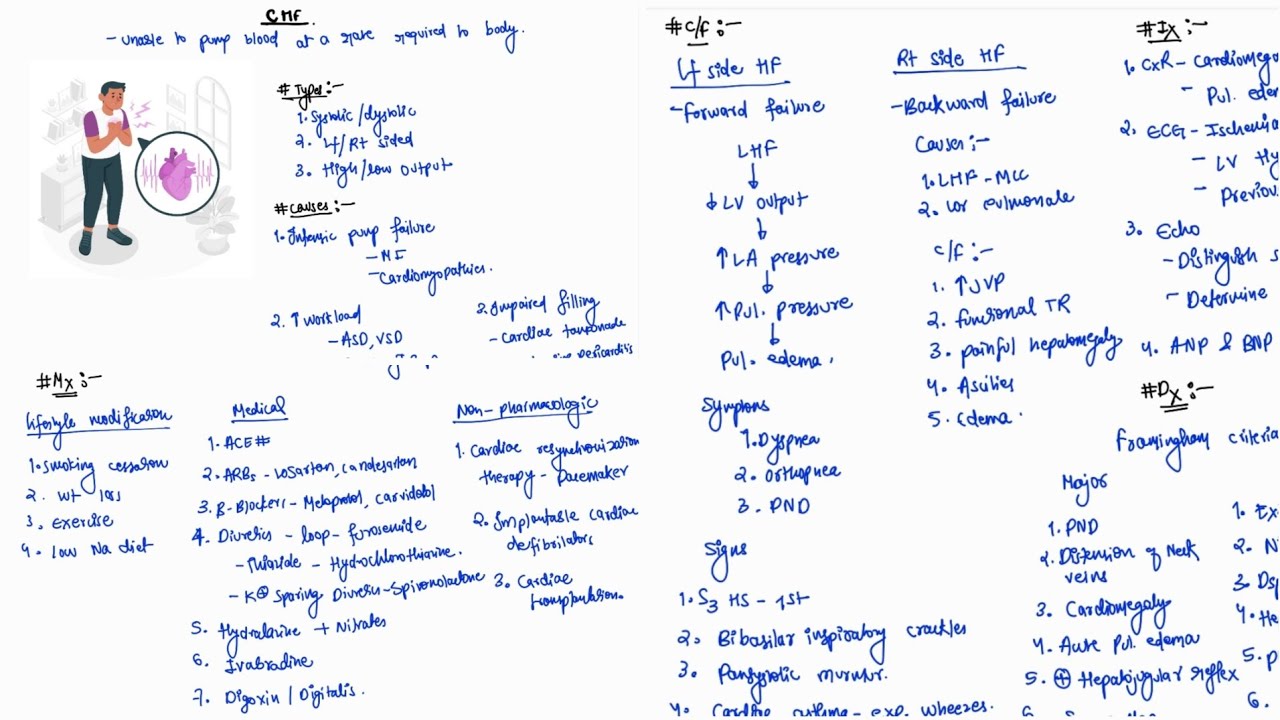 CHF
- unable to pump blood at a rate required to body.
# Types :-
1. Systolic / dystolic
2. Lf/Rt sided
3. High/low output
# Causes :-
1. Intrinsic pump failure
- MI
- Cardiomyopathies.
2. ↑ workload
- ASD, VSD
3. Impaired filling
- Cardiac tamponade
pericarditis
# Mx :-
lifestyle modification
1. smoking cessation
2. wt loss
3. exercise
4. low Na diet
Medical
1. ACE #
2. ARBs - losartan, candesartan
3. β-Blockers - Metoprolol, carvidolol
4. Diuretics - loop - furosemide
- Thiazide - Hydrochlorothiazine.
- K⊕ Sparing Diuretic - Spironolactone
5. Hydralazine + Nitrates
6. Ivabradine
7. Digoxin / Digitalis.
Non-pharmacologic
1. Cardiac resynchronization
therapy - pacemaker
2. Implantable cardiac
defibrilators
3. Cardiac
transplantation.
# C/f :-
Lf side HF
- Forward failure
LHF
↓ LV output
↑ LA pressure
↑ Pul. pressure
Pul. edema.
Symptoms
1. Dyspnea
2. Orthopnea
3. PND
Signs
1. S3 HS - 1st
2. Bibasilar inspiratory crackles
3. Pansystolic murmur.
4. Cardiac asthma - exp. wheezes.
Rt side HF
- Backward failure
Causes :-
1. LHF - MCC
2. Cor pulmonale
C/f :-
1. ↑ JVP
2. functional TR
3. painful hepatomegaly
4. Ascities
5. Edema.
# Ix :-
1. CxR - Cardiomego
- Pul. eder
2. ECG - Ischemia
- LV Hy
- Previou
3. Echo
- Distinguish s
- Determine
4. ANP & BNP
# Dx :-
Framingham criteria
Major
1. PND
2. Distension of Neck
veins
3. Cardiomegaly
4. Acute Pul. edema
5. ⊕ Hepatojugular reflex
6.
1. Ex
2. N
3. Dsp
4. He
5. P
6.